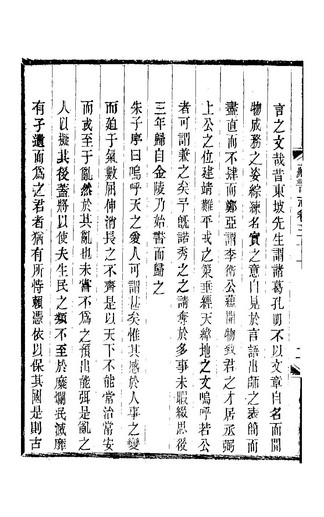 言之文哉昔東坡先生謂諸葛孔明不以文章自名而開
物成務之姿綜練名實之意自見於言語出師之表簡而
盡直而不肆而鄭亞謂李衛公蘊開物致君之才居丞弼
上公之位建靖難平戎之策垂經天緯地之文嗚呼若公
者可謂兼之矣予旣諾秀之之請奪於多事未暇綴思後
三年歸自金陵乃始書而歸之
朱子序曰嗚呼天之愛人可謂甚矣惟其感於人事之變
而迫于氣數屈伸消長之不齊是以天下不能常治常安
而或至于亂然於其亂也未嘗不爲之預出能弭是亂之
人以擬其後蓋將以使夫生民之類不至於糜爛民滅靡
有孑遺而爲之君者猶有所恃賴憑依以保其國是則古